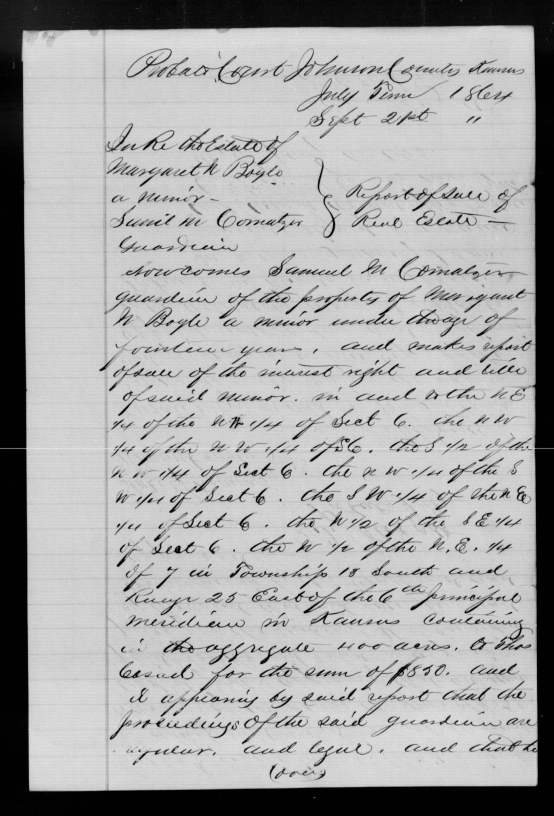 Probate Court Johnson County Kansas
July Term 1864
Sept 21st "
In Re the Estate of
Margaret W Boyle
a minor -
Saml M Cornatzer
Guardian
Report of sale of
Real Estate
Now comes Samuel M Cornatzer
guardian of the property of Margaret
W Boyle a minor under the age of
fourteen years, and makes report
of sale of the interest right and title
of said minor. in and to the N E
1/4 of the N W 1/4 of Sect 6. the N W
1/4 of the N W 1/4 of S6. the S 1/2 of the
N W 1/4 of Sect 6. the N W 1/4 of the S
W 1/4 of Sect 6. the S W 1/4 of the N E
1/4 of Sect 6. the W 1/2 of the S E 1/4
of Sect 6. the W 1/2 of the N.E. 1/4
of 7 in Township 13 South and
Range 25 East of the 6th principal
meridian in Kansas containing
in the aggregate 400 acres. to Thos
for the sum of $850. and
it appearing by said report that the
proceedings of the said guardian are
regular. and legal. and that he
(over)